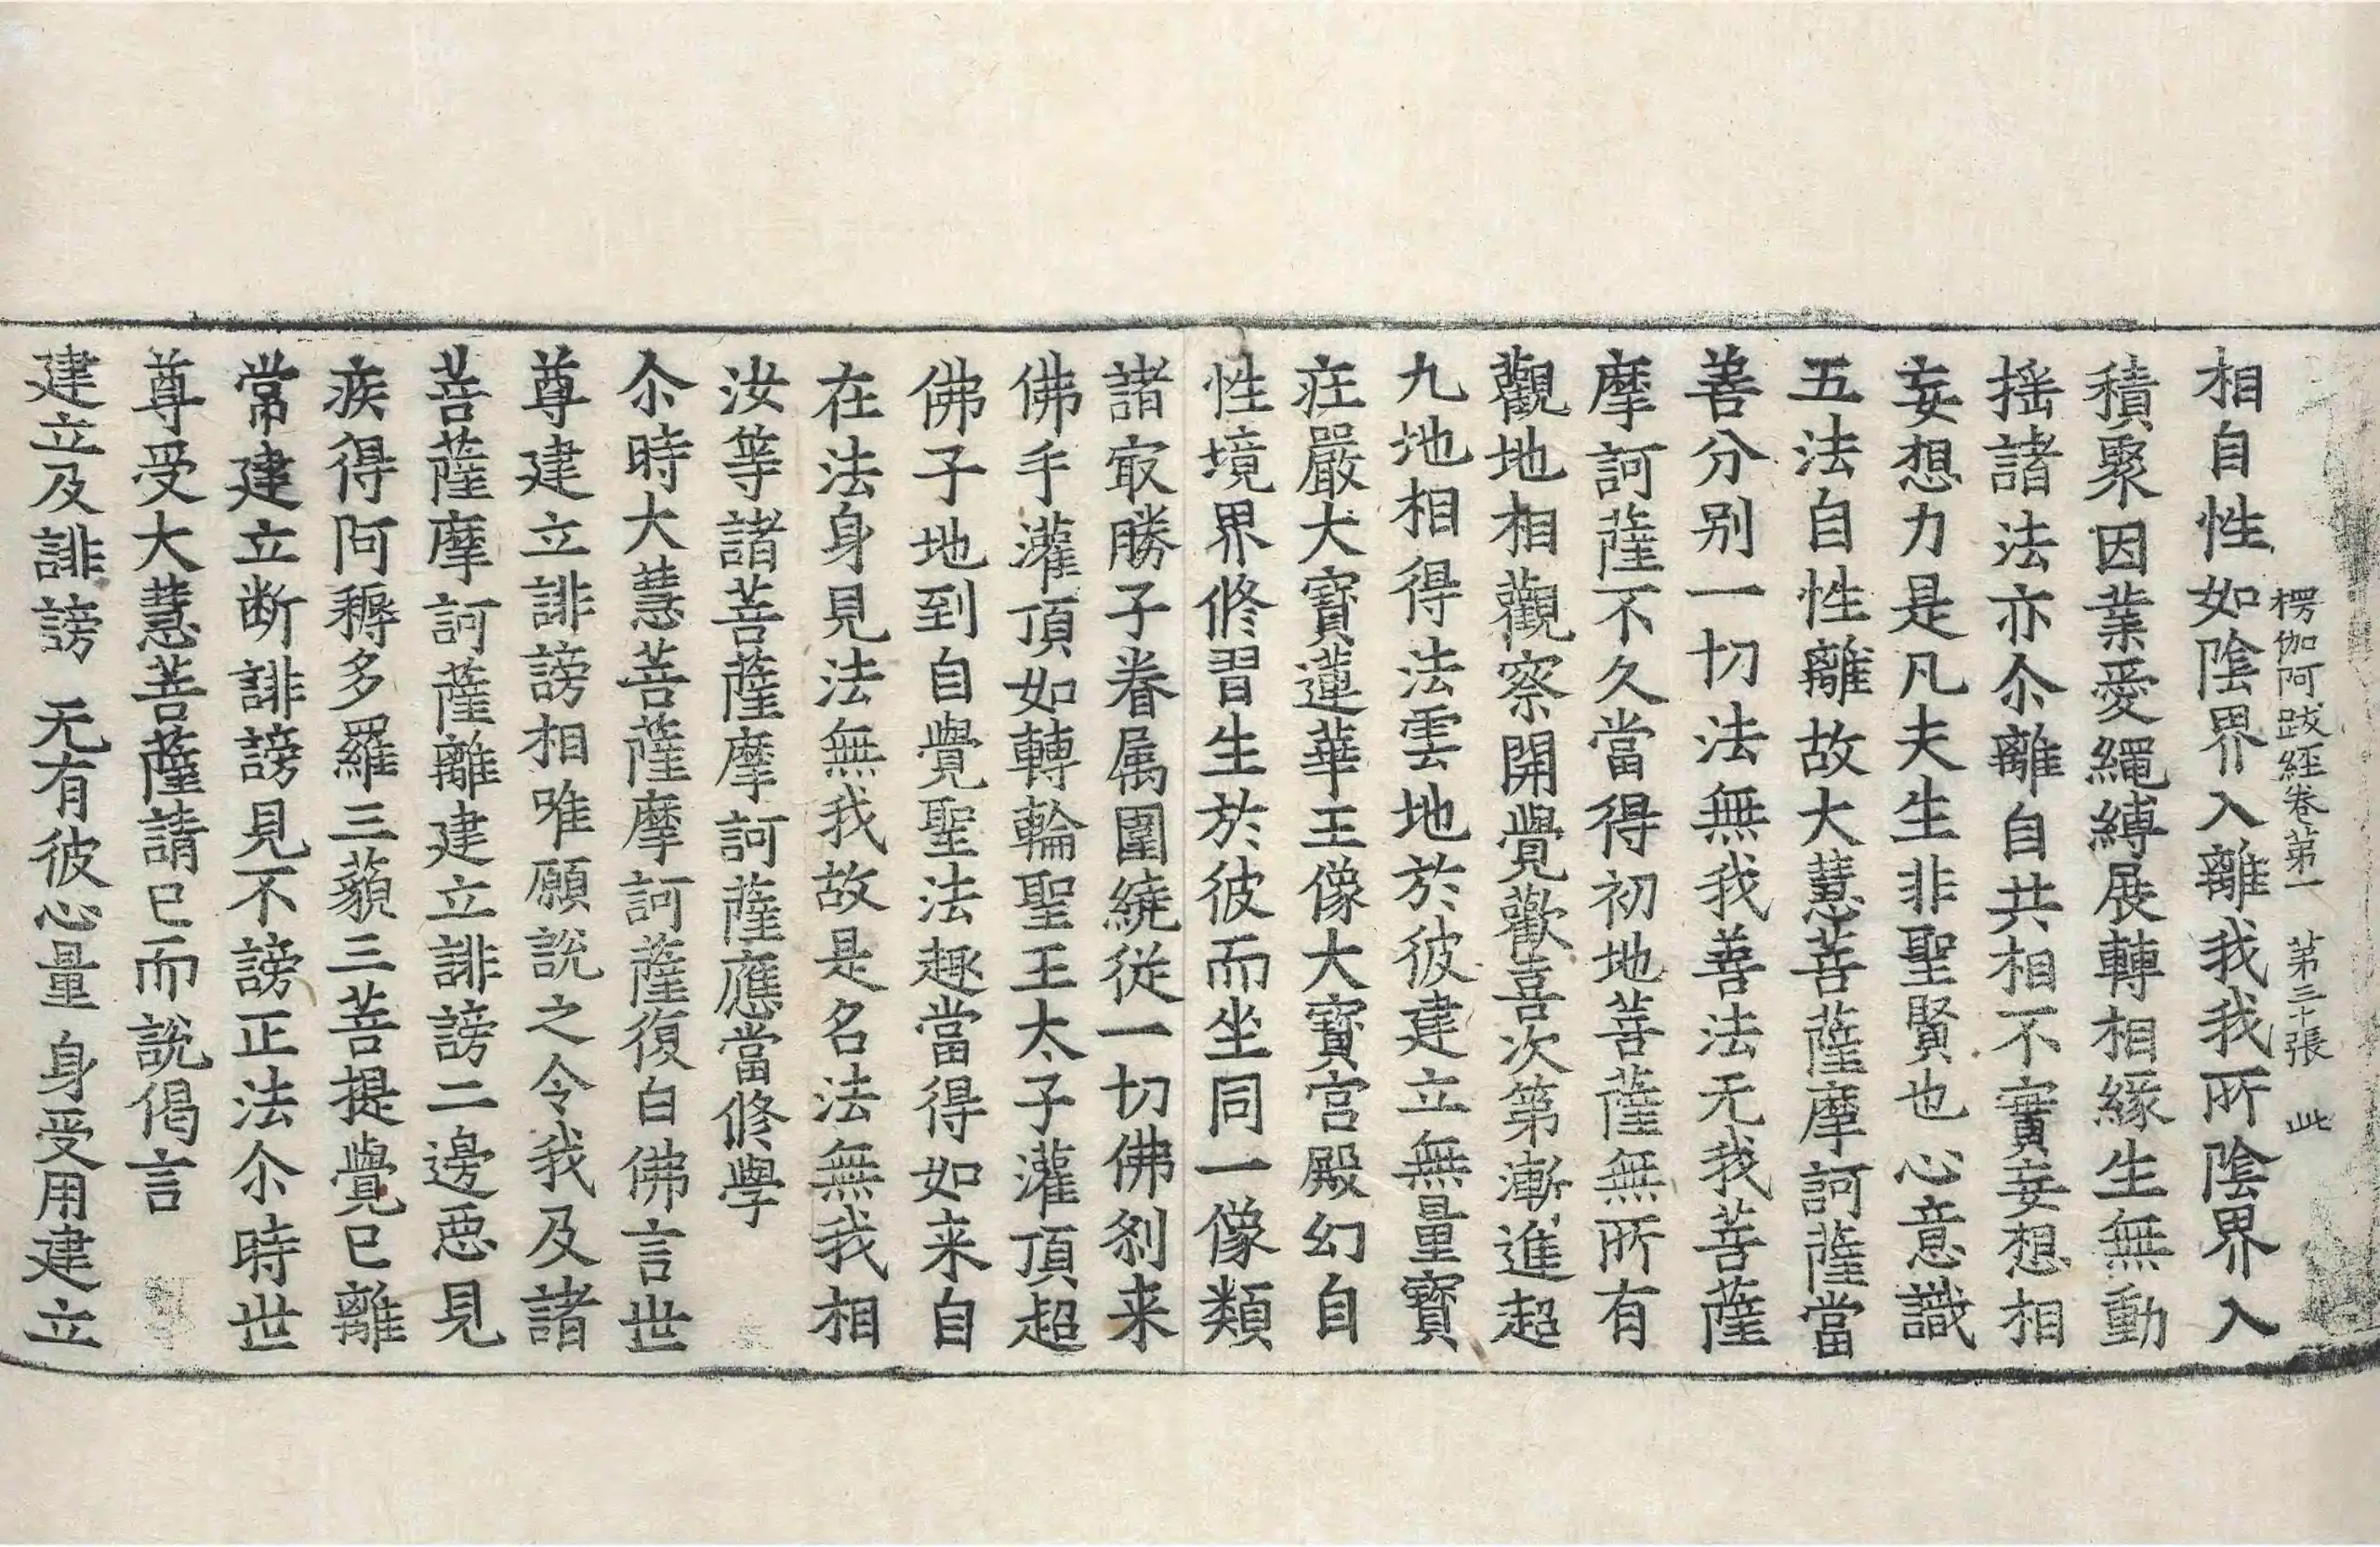 楞伽阿跋經卷第一　第三十張　此
相自性如陰界入離我我所陰界入
積聚因業愛繩縛展轉相緣生無動
搖諸法亦尒離自共相不實妄想相
妄想力是凡夫生非聖賢也心意識
五法自性離故大慧菩薩摩訶薩當
善分别一切法無我善法无我菩薩
摩訶薩不久當得初地菩薩無所有
觀地相觀察開覺歡喜次第漸進超
九地相得法雲地於彼建立無量寶
莊嚴大寶蓮華王像大寶宮殿幻自
性境界修習生於彼而坐同一像類
諸㝡勝子眷属圍繞従一切佛刹来
佛手灌頂如轉輪聖王太子灌頂超
佛子地到自覺聖法趣當得如来自
在法身見法無我故是名法無我相
汝等諸菩薩摩訶薩應當修學
尒時大慧菩薩摩訶薩復白佛言世
尊建立誹謗相唯願說之令我及諸
菩薩摩訶薩離建立誹謗二邊惡見
疾得阿耨多羅三藐三菩提覺已離
常建立断誹謗見不謗正法尒時世
尊受大慧菩薩請已而說偈言
建立及誹謗　无有彼心量　身受用建立